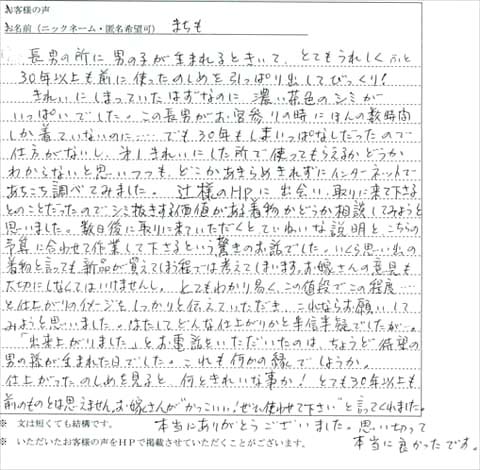 お客様の声
お名前（ニックネーム・匿名希望可） まちも
長男の所に男の子が生まれるときいて、とてもうれしくふと
30年以上も前に使ったのしめを引っぱり出してびっくり！
きれいにしまっていたはずなのに濃い茶色のシミが
いっぱいでした。この長男がお宮参りの時にほんの数時間
しか着ていないのに……でも30年もしまいっぱなしだったので
仕方がないし、第1きれいにした所で使ってもらえるかどうか
わからないと思いつつも、どこかあきらめきれずにインターネットで
あちこち調べてみました。辻様のHPに出会い、取りに来て下さる
とのことだったのでシミ抜きする価値がある着物かどうか相談してみようと
思いました。数日後に取りに来ていただくとていねいな説明と、こちらの
予算に合わせて作業して下さるという驚きのお話でした。いくら思い出の
着物と言っても新品が買えてしまう程では考えてしまいます。お嫁さんの意見も
大切にしなくてはいけませんし。とてもわかり易く、この値段でこの程度……
と仕上がりのイメージをしっかりと伝えていただき、これならお願いして
みようと思いました。はたしてどんな仕上がりかと半信半疑でしたが…。
「出来上がりました」とお電話をいただいたのは、ちょうど待望の
男の孫が生まれた日でした。これも何かの縁でしょうか。
仕上がったのしめを見ると、何ときれいな事か！とても30年以上も
前のものとは思えません。お嫁さんが"かっこいい！ぜひ使わせて下さい"と言ってくれました。
※ 文は短くても結構です。 本当にありがとうございました。思い切って
※ いただいたお客様の声をHPで掲載させていただくことがございます。 本当に良かったです。